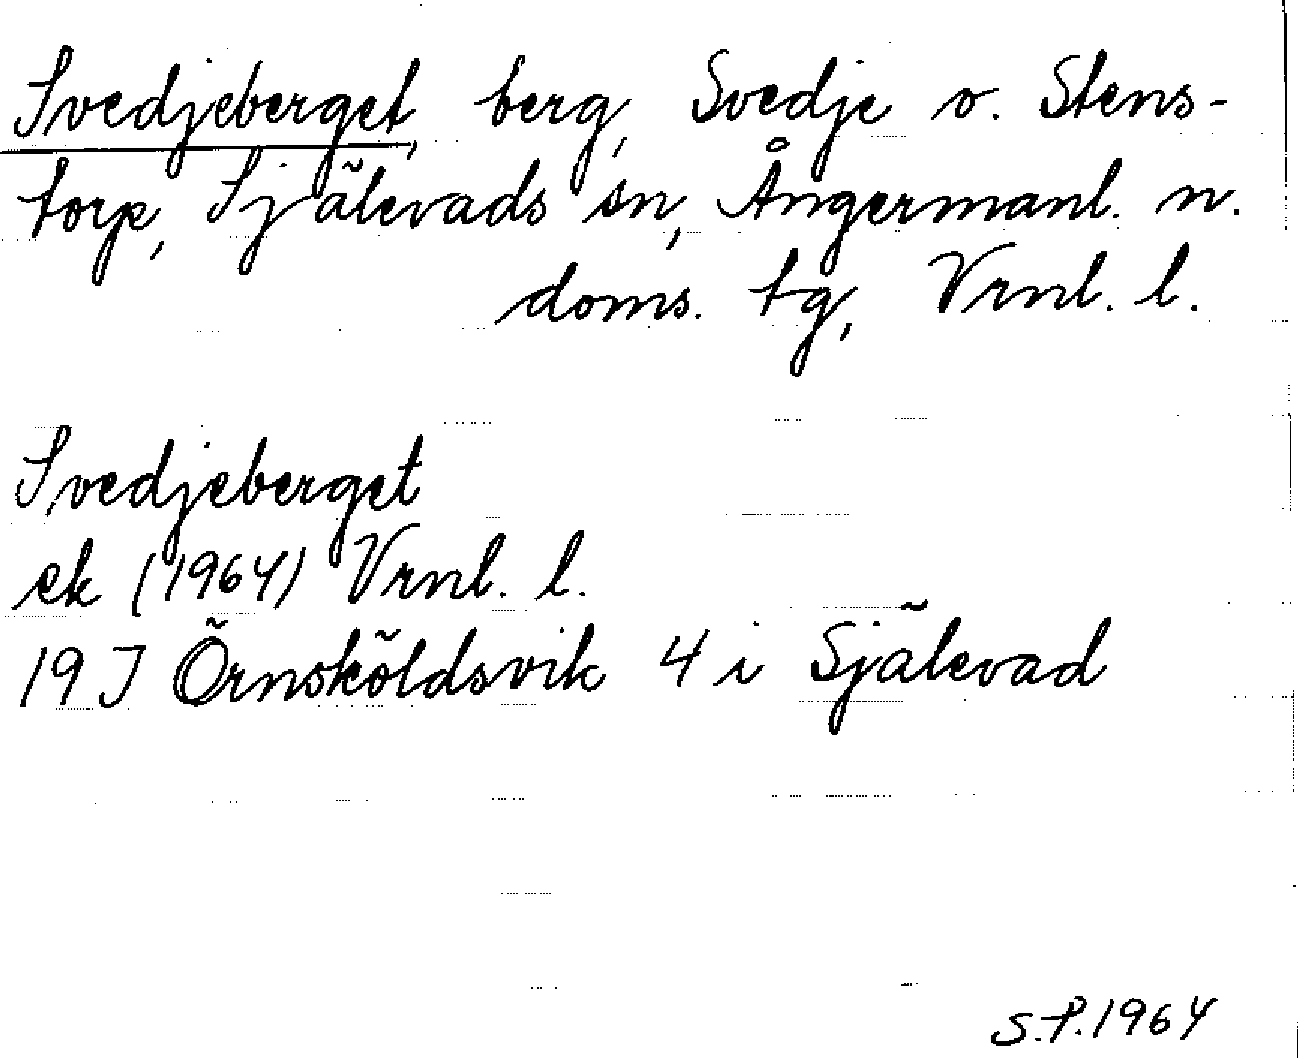 Svedjeberget, berg, Svedje o. Stens-
torp, Själevads sn, Ångermanl. n.
doms. tg, Vrnl. l.
Svedjeberget
ek (1964) Vrnl. l.
19 J Örnsköldsvik 4 i Själevad
S.P. 1964